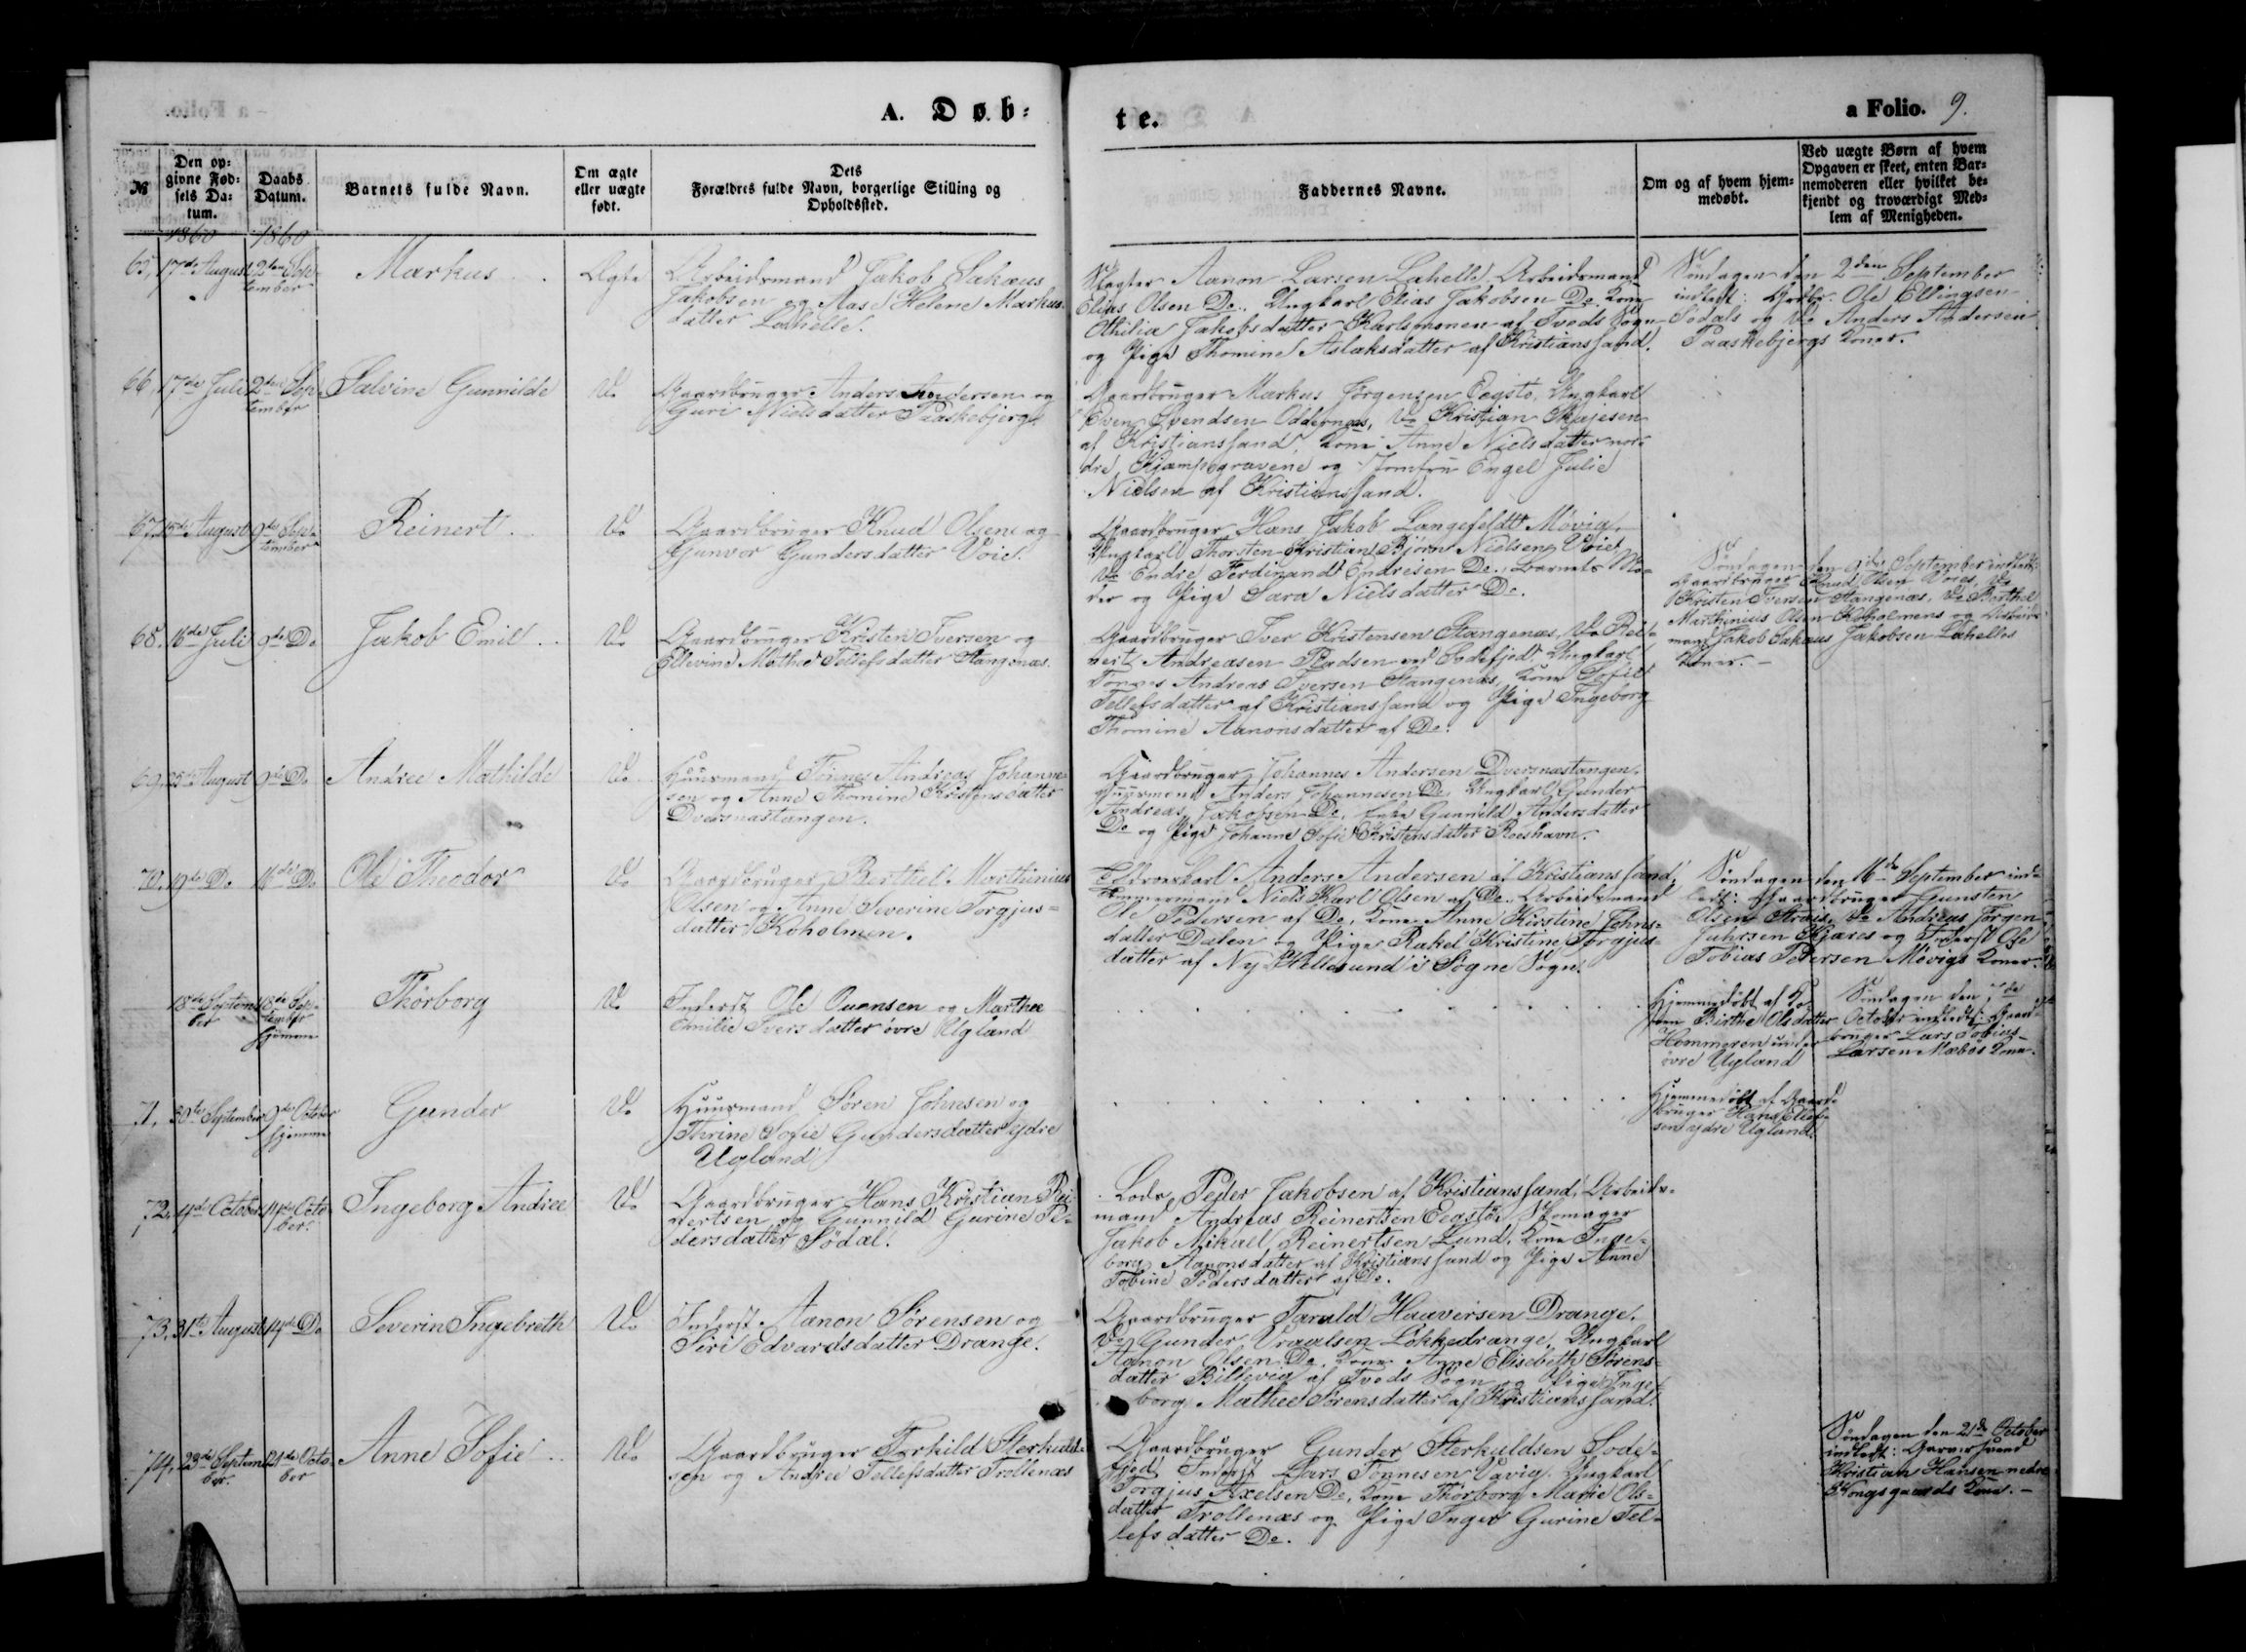 A. Døb=
te.
a Folio. 9.
№
Den op=
givne Fød=
sels Da=
tum.
Daabs
Datum.
Barnets fulde Navn.
Om ægte
eller uægte
født.
Dets
Forældres fulde Navn, borgerlige Stilling og
Opholdssted.
Faddernes Navne.
Om og af hvem hjem=
medøbt.
Ved uægte Børn af hvem
Opgaven er skeet, enten Bar=
nemoderen eller hvilket be=
kjendt og troværdigt Med=
lem af Menigheden.
1860 1860
65, 17de August 2den Sep-
tember
Markus
Ægte
Arbeidsmand Jakob Sakæus
Jakobsen og Aase Helene Markus-
datter Lahelle.
Aanon Larsen Lahelle, Arbeidsmand
Elias Olsen Do., Ungkarl Elias Jakobsen Do. Kone
Othilia Jakobsdatter Karlsmonen af Tveds Sogn
og Pige Thomine Aslaksdatter af Kristianssand.
Søndagen den 2den September
indledt: Ole Ellingsen
Sødals og Do Anders Andersen
Paaskebjergs Koner.
66, 17de Juli 2den Sep-
tember
Salvine Gunnilde
Do
Gaardbruger Anders Andersen og
Guri Nielsdatter Paaskebjerg.
Gaardbruger Markus Jørgensen Eegstø, Ungkarl
Svendsen Oddernæs, Do Kristian
af Kristianssand, Kone Anne Nielsdatter nor-
dre Kjæmpegravene og Jomfru Engel Julie
Nielsen af Kristianssand.
67, 15de August 9de Sep-
tember
Reinert
Do
Gaardbruger Knud Olsen og
Gunvor Gundersdatter Voie.
Gaardbruger Hans Jakob Langefeldt Møvig,
Ungkarl Thorsten Kristian Bjørn Nielsen Voie,
Do Endre Ferdinand Endresen Do., Barnets Mo-
der og Pige Sara Nielsdatter Do.
Søndagen den 9de September indledt:
Gaardbruger Knud Olsen Voies, Do
Kristen Iversen Stangenæs, Do Berthel
Marthinius Olsen Koholmens og Arbeids-
mand Jakob Sakæus Jakobsen Lahelles
Koner. -
68. 16de Juli 9de Do
Jakob Emil
Do
Gaardbruger Kristen Iversen og
Ellevine Mathea Tellefsdatter Stangenæs.
Gaardbruger Iver Kristensen Stangenæs, Do Rei-
nert Andreasen ved Sodefjed, Ungkarl
Tønnes Andreas Iversen Stangenæs, Kone Sofie
Tellefsdatter af Kristianssand og Pige Ingeborg
Thomine Aanonsdatter af Do.
69, 25de August 9de Do
Andrea Mathilde
Do
Huusmand Tønnes Andreas Johanne-
sen og Anne Thomine Kristensdatter
Dversnæstangen.
Gaardbruger Johannes Andersen Dversnæstangen.
Huusmand Anders Johannesen Do Ungkarl Gunder
Andreas Jakobsen Do, Enke Gunnild Andersdatter
Do og Pige Johanne Sofie Kristensdatter Roeshavn.
70. 19de Do 16de Do
Ole Theodor
Do
Gaardbruger Berthel Marthinius
Olsen og Anne Severine Torgjus=
datter Koholmen.
Anders Andersen af Kristianssand,
Tømmermand Niels Karl Olsen af Do. Arbeidsmand
Ole Pedersen af Do, Kone Anne Kirstine Johns-
datter Dalen og Pige Rakel Kristine Torgjus-
datter af Ny Hellesund i Søgne Sogn.
Søndagen den 16de September ind-
ledt: Gaardbruger Gunsten
Olsen Strais, Do Andreas Jørgen
Kjæres og Inderst Ole
Tobias Pedersen Møvigs Koner.
18de Septem-
ber
18de Sep-
tember
hjemme
Thorborg
Do
Inderst Ole Ouensen og Marthea
Emilie Iversdatter øvre Ugland
Hjemmedøbt af Ko-
nen Birthe Olsdatter
Hommeren under
øvre Ugland
Søndagen den 7de
October indledt: Gaard-
bruger Lars Tobias
Larsen Mæbøs Kone.
71, 30te September 9de October
hjemme
Gunder
Do
Huusmand Søren Johnsen og
Thrine Sofie Gundersdatter ydre
Ugland
Hjemmedøbt af Gaard-
bruger Hans Elief-
sen ydre Ugland.
72, 4de October 14de Octo-
ber.
Ingeborg Andrea
Do
Gaardbruger Hans Kristian Rei-
nertsen og Gunnild Gurine Pe-
dersdatter Sødal.
Lods Peder Jakobsen af Kristianssand, Arbeids-
mand Andreas Reinertsen Eegstø, Skomager
Jakob Mikael Reinertsen Lund, Kone Inge-
borg Aanonsdatter af Kristianssand og Pige Anne
Tobine Pedersdatter af Do.
73, 31te August 14de Do
Severin Ingebreth
Do
Inderst Aanon Sørensen og
Siri Edvardsdatter Drange.
Gaardbruger Tarald Haaversen Drange.
Do Gunder Vraalsen Løkkedrange, Ungkarl
Aanon Olsen Do. Kone Anne Elisebeth Sørens-
datter Billevig af Tveds Sogn og Pige Inge-
borg Mathea Sørensdatter af Kristianssand.
74, 23de Septem-
ber.
21de Octo-
ber
Anne Sofie
Do
Gaardbruger Terkild Sterkuld-
sen og Andrea Tellefsdatter Trollenæs
Gaardbruger Gunder Sterkuldsen Sode-
fjed, Inderst Lars Tønnesen Vavig, Ungkarl
Torgjus Axelsen Do, Kone Thorborg Marie Ols-
datter Trollenæs og Pige Inger Gurine Tel-
lefsdatter Do.
Søndagen den 21de October
indledt: Garversvend
Kristian Hansen nedre
Kongsgaards Kone. -